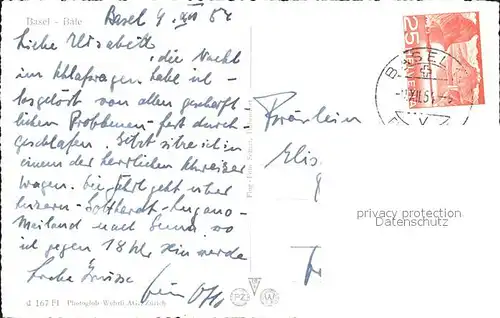 Basel - Bâle
Basel 4. XII 5
Liebe Elisabeth
, die Nacht
im Schlafwagen habe ich
losgelöst von allen geschäft-
lichen Problemen - fest durch-
geschlafen. Jetzt sitze ich in
einem der herrlichen Schweizer
Wagen. Die Fahrt geht über
Luzern - Gotthardt - Lugano -
Mailand nach Genua, wo
ich gegen 18 Uhr sein werde
Grüsse
Dein Otto
d 167 FI Photoglob-Wehrli A.G. Zürich
PZ W
25
BASEL
XII.51
Fräulein
Elis
privacy protection
Datenschutz